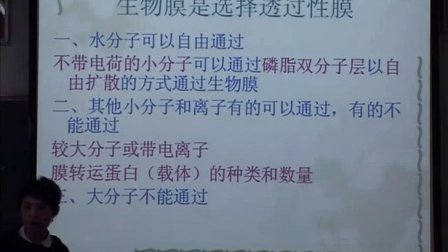 生物膜是选择透过性膜
一、水分子可以自由通过
不带电荷的小分子可以通过磷脂双分子层以自
由扩散的方式通过生物膜
二、其他小分子和离子有的可以通过，有的不
能通过
较大分子或带电离子
膜转运蛋白（载体）的种类和数量
三、大分子不能通过